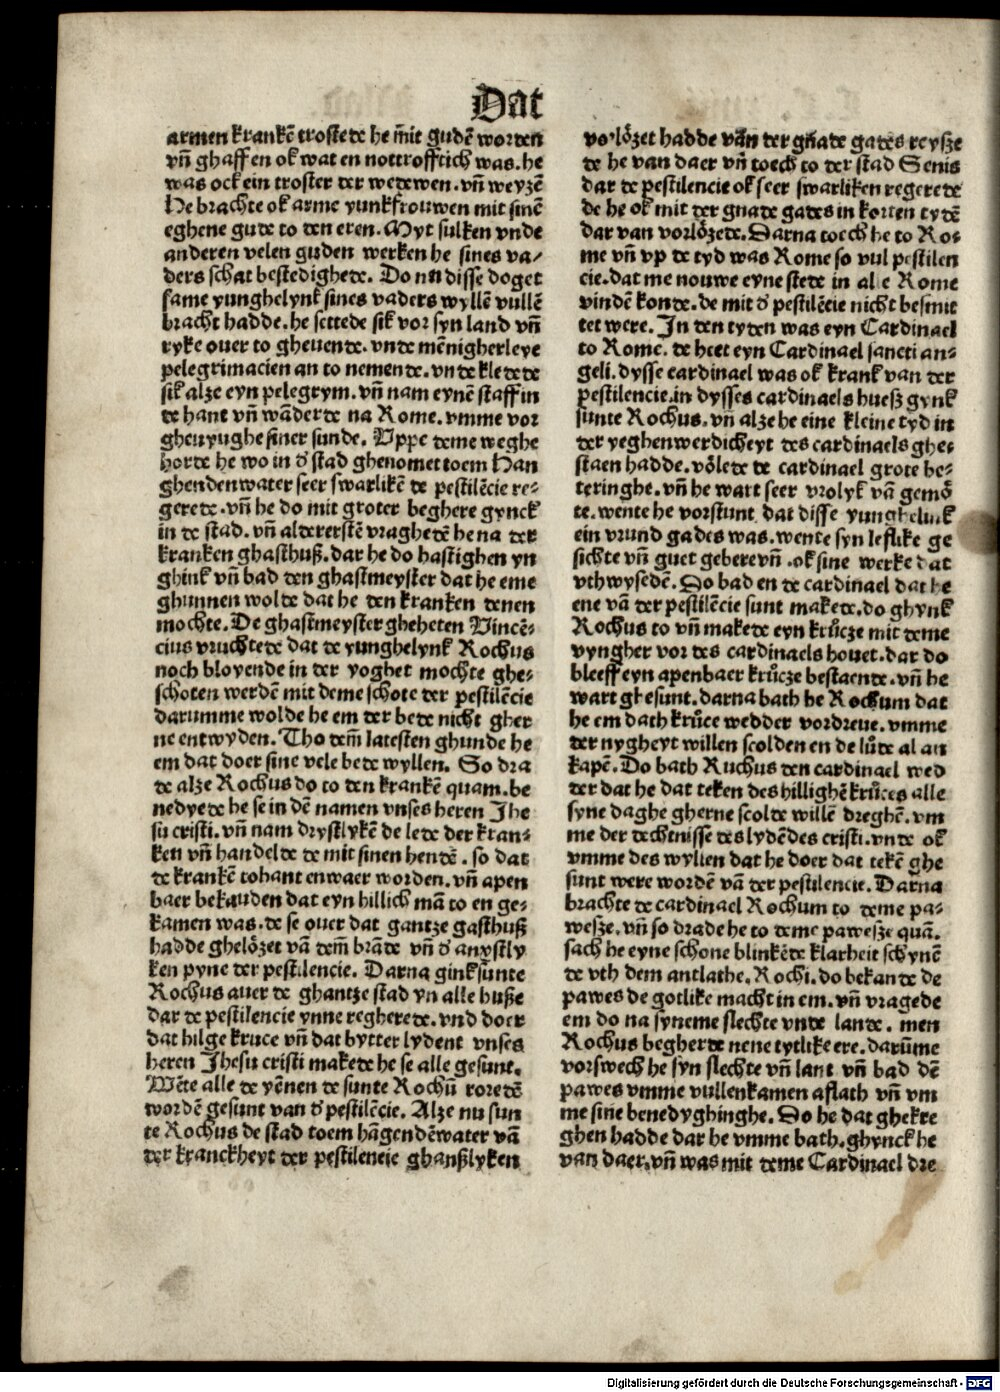 Dat
armen krankē trostede he m̄it gudē worden
vn̄ ghaffen ok wat en nottrofftich was. he
was ock ein troster der wedewen. vn̄ weyzē
He brachte ok arme yunkfrouwen mit sinē
eghene gude to den eren. Myt sulken vnde
anderen velen guden werken he sines va/
ders schat bestedighede. Do nu disse doget
same yunghelynk sines vaders wyllē vullē
bracht hadde. he settede sik vor syn land vn̄
ryke ouer to gheuende. vnde mēnigherleye
pelegrimacien an to nemende. vnde kledede
sik alze eyn pelegrym. vn̄ nam eynē staff in
de hant vn̄ wāderde na Rome. vmme vor
gheuyughe siner sunde. Uppe deme weghe
horde he wo in d̄ stad ghenomet toem Han
ghenden water seer swarlikē de pestilēcie re⸗
gerede. vn̄ he do mit groter beghere gynck
in de stad. vn̄ aldererstē vraghedē he na der
kranken ghasthuß. dar he do hastighen yn
ghink vn̄ bad den ghastmeyster dat he eme
ghunnen wolde dat he den kranken denen
mochte. De ghastmeyster gheheten Vincē⸗
cius vruchtede dat de yunghelynk Rochus
noch bloyende in der yoghet mochte ghe⸗
schoten werdē mit deme schote der pestilēcie
darumme wolde he em der bede nicht gher
ne entwyden. Tho dem̄ latesten ghunde he
em dat doer sine vele bede wyllen. So dra
de alze Rochus do to den krankē quam. be
nedyede he se in dē namen vnses heren Jhe
su cristi. vn̄ nam drystlykē de lede der kran⸗
ken vn̄ handelde de mit sinen hendē. so dat
de krankē tohant enwaer worden. vn̄ apen
baer bekanden dat eyn hillich mā to en ge⸗
kamen was. de se ouer dat gantze gasthuß
hadde ghelözet vā dem̄ brāde vn̄ d̄ anxstly
ken pyne der pestilencie. Darna gink sūnte
Rochus auer de ghantze stad yn alle huße
dar de pestilencie ynne regherede. vnd doer
dat hilge kruce vn̄ dat bytter lydent vnses
heren Jhesu cristi makede he se alle gesunt.
Wēte alle de yēnen de sunte Rochū roredē
wordē gesunt van d̄ pestilēcie. Alze nu sun
te Rochus de stad toem hāgendēwater vā
der kranckheyt der pestilencie ghanßlyken
vorlözet hadde van der gnade gades reysze
de he van daer vn̄ toech to der stad Senis
dar de pestilencie ok seer swarliken regerede
de he ok mit der gnade gades in korten tydē
dar van vorlözede. Darna toech he to Ro⸗
me vn̄ vp de tyd was Rome so vul pestilen
cie. dat me nouwe eyne stede in alle Rome
vinden konde. de mit d̄ pestilēcie nicht besmit
tet were. In den tyden was eyn Cardinael
to Rome. de heet eyn Cardinael sancti an⸗
geli. dysse cardinael was ok krank van der
pestilencie. in dysses cardinaels huesz gynk
sunte Rochus. vn̄ alze he eine kleine tyd in
der yeghenwerdicheyt des cardinaels ghe⸗
staen hadde. völede de cardinael grote be⸗
teringhe. vn̄ he wart seer vrolyk vā gemö
te. wente he vorstunt dat disse yunghelink
ein vrund gades was. wente syn leflike ge
sichte vn̄ guet geberevn̄. ok sine werke dat
vthwysedē. So bad en de cardinael dat he
ene vā der pestilēcie sunt makede. do ghynk
Rochus to vn̄ makede eyn krůcze mit deme
vyngher vor des cardinaels houet. dar do
bleeff eyn apenbaer krůcze bestaende. vn̄ he
wart ghesunt. darna bath he Rochum dat
he em dath krůce wedder vordreue. vmme
der nygheyt willen scolden en de lůde al an
kapē. Do bath Ruchus den cardinael wed
der dat he dat teken des hillighē krůces alle
syne daghe gherne scolde willē dreghē. vm
me der dechtnisse des lydēdes cristi. vnde ok
vmme des wyllen dat he doer dat tekē ghe
sunt were wordē vā der pestilencie. Darna
brachte de cardinael Rochum to deme pa⸗
wesze. vn̄ so drade he to deme pawesze quā.
sach he eyne schone blinkēde klarheit schynē
de vth dem antlathe. Rochi. do bekande de
pawes de gotlike macht in em. vn̄ vragede
em do na syneme slechte vnde lande. men
Rochus begherde nene tytlike ere. darūme
vorswech he syn slechte vn̄ lant vn̄ bad dē
pawes vmme vullenkamen aflath vn̄ vm
me sine benedyghinghe. Do he dat ghekre
ghen hadde dar he vmme bath. ghynck he
van daer. vn̄ was mit deme Cardinael dre
Digitalisierung gefördert durch die Deutsche Forschungsgemeinschaft - DFG